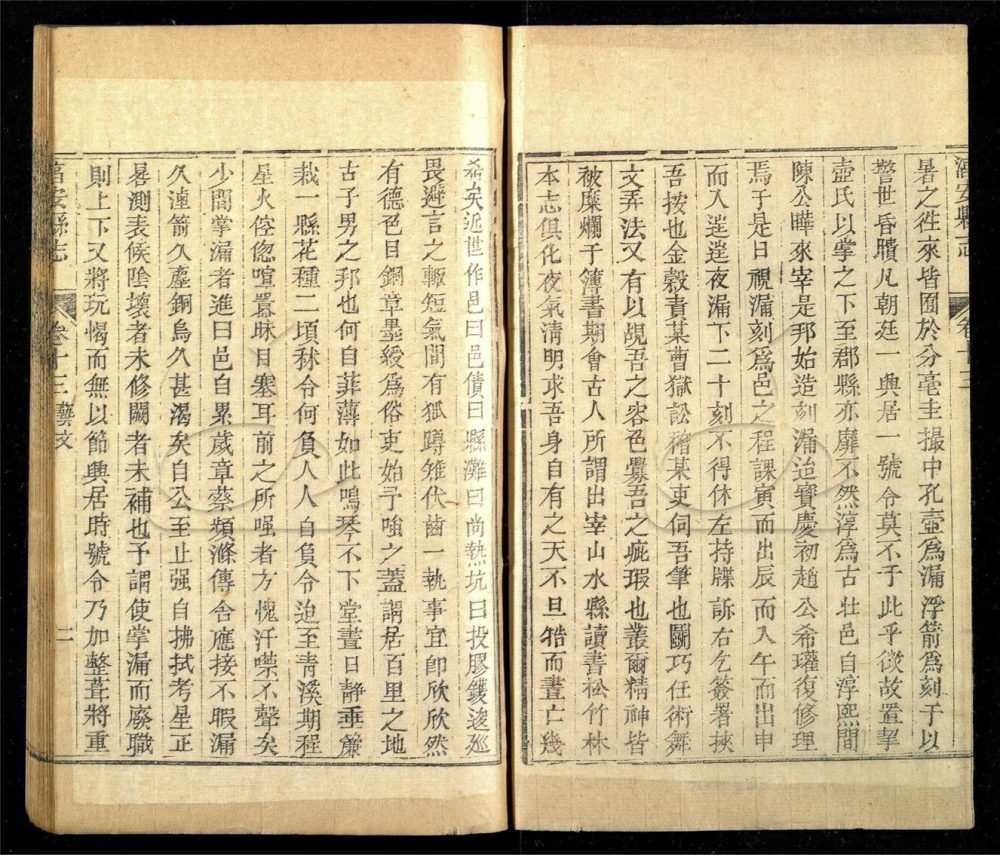 淳安縣志 卷十三
暑之往來皆囿於分毫圭撮中孔壺爲漏浮箭爲刻于以
警世昏聵凡朝廷一興居一號令莫不于此乎徵故置挈
壺氏以掌之下至郡縣亦靡不然淳爲古壯邑自淳熙間
陳公曄來宰是邦始造刻漏迨寶慶初趙公希瓘復修理
焉于是日視漏刻爲邑之程課寅而出辰而入午而出申
而入逹逹夜漏下二十刻不得休左持牒訴右乞簽署挾
吾按也金穀責某曹獄訟稽某吏伺吾筆也鬭巧任術舞
文弄法又有以覘吾之容色釁吾之疵瑕也叢爾精神皆
被糜爛于簿書期會古人所謂出宰山水縣讀書松竹林
本志俱化夜氣清明求吾身自有之天不旦牿而晝亡幾
希矣近世作邑曰邑債曰縣灘曰尚熱坑曰投膠鑊逡廵
畏避言之輙短氣間有狐蹲雉伏齒一執事宜卽欣欣然
有德色目銅章墨綬爲俗吏始予嗤之蓋謂居百里之地
古子男之邦也何自菲薄如此鳴琴不下堂晝日靜垂簾
栽一縣花種二頃秫令何負人人自負令迨至青溪期程
星火倥偬喧囂眯目塞耳前之所嗤者方愧汗噤不聲矣
少間掌漏者進曰邑自累歲章蔡頻滌傳舍應接不暇漏
久湮箭久塵銅烏久甚渴矣自公至止强自拂拭考星正
晷測表候陰壞者未修闕者未補也予謂使掌漏而廢職
則上下又將玩愒而無以節興居時號令乃加整葺將重
淳安縣志 卷十三 藝文 二